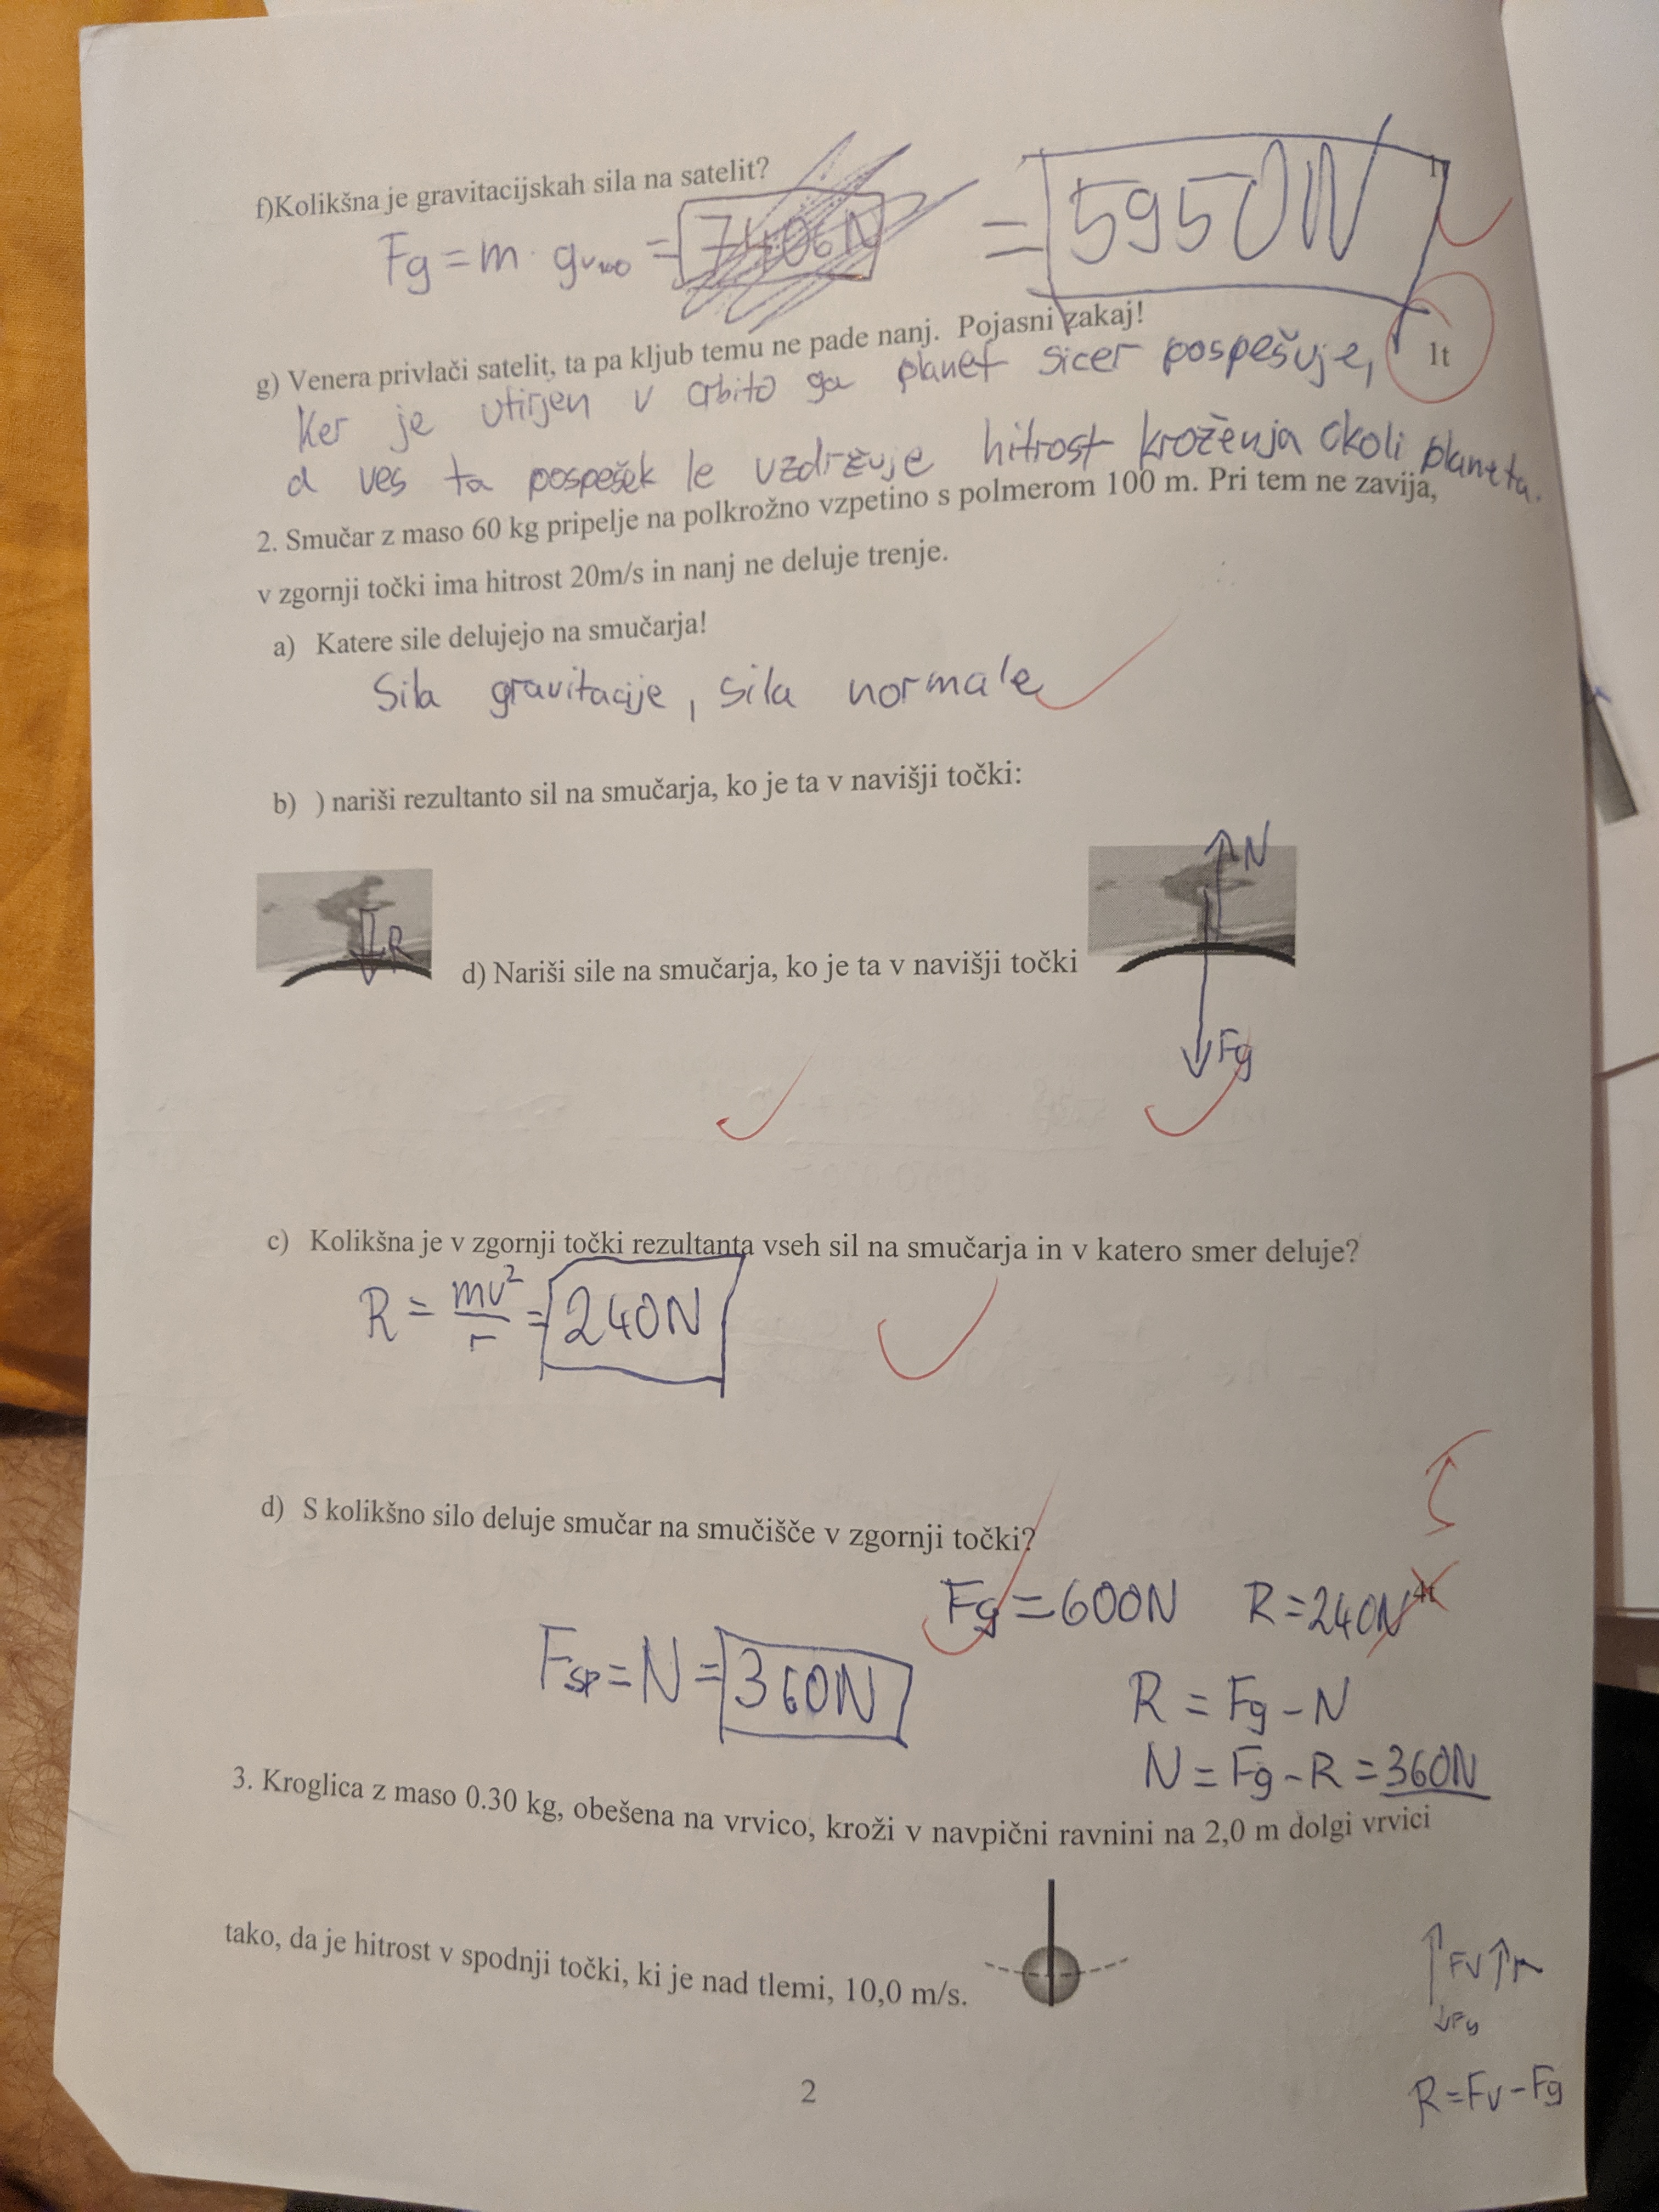 f)Kolikšna je gravitacijskah sila na satelit?
Fg = m · g = 7406N = 5950N
g) Venera privlači satelit, ta pa kljub temu ne pade nanj. Pojasni zakaj! 1t
Ker je utirjen v orbito ga planet sicer pospešuje,
a ves ta pospešek le vzdržuje hitrost kroženja okoli planeta.
2. Smučar z maso 60 kg pripelje na polkrožno vzpetino s polmerom 100 m. Pri tem ne zavija,
v zgornji točki ima hitrost 20m/s in nanj ne deluje trenje.
a) Katere sile delujejo na smučarja!
Sila gravitacije, sila normale
b) ) nariši rezultanto sil na smučarja, ko je ta v navišji točki:
R
N
d) Nariši sile na smučarja, ko je ta v navišji točki
Fg
c) Kolikšna je v zgornji točki rezultanta vseh sil na smučarja in v katero smer deluje?
R = mv²/r = 240N
d) S kolikšno silo deluje smučar na smučišče v zgornji točki?
Fg = 600N R = 240N 4t
Fsp = N = 360N
R = Fg - N
N = Fg - R = 360N
3. Kroglica z maso 0.30 kg, obešena na vrvico, kroži v navpični ravnini na 2,0 m dolgi vrvici
tako, da je hitrost v spodnji točki, ki je nad tlemi, 10,0 m/s.
Fv
Fg
R = Fv - Fg
2